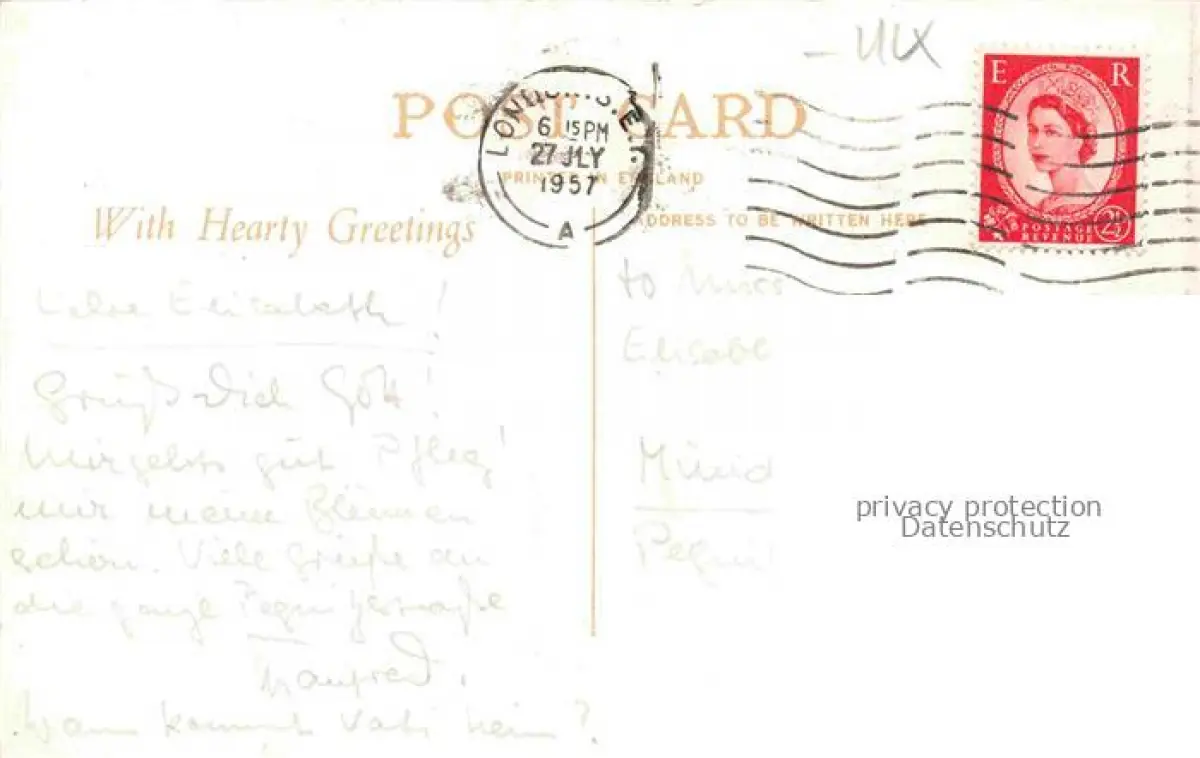 UK
E R
POST CARD
LONDON. S.E.1.
6 15PM
27 JLY
1957
A
PRINTED IN ENGLAND
With Hearty Greetings
ADDRESS TO BE WRITTEN HERE
POSTAGE
REVENUE
2½
Liebe Elisabeth!
Grüß Dich Gott!
Mir gehts gut Pfleg'
mir meine Blumen
schön. Viele Grüße an
die ganze Pegnitzstraße
Manfred.
Wann kommt Vati heim?
to Miss
Elisabe
Münc
Pegni
privacy protection
Datenschutz